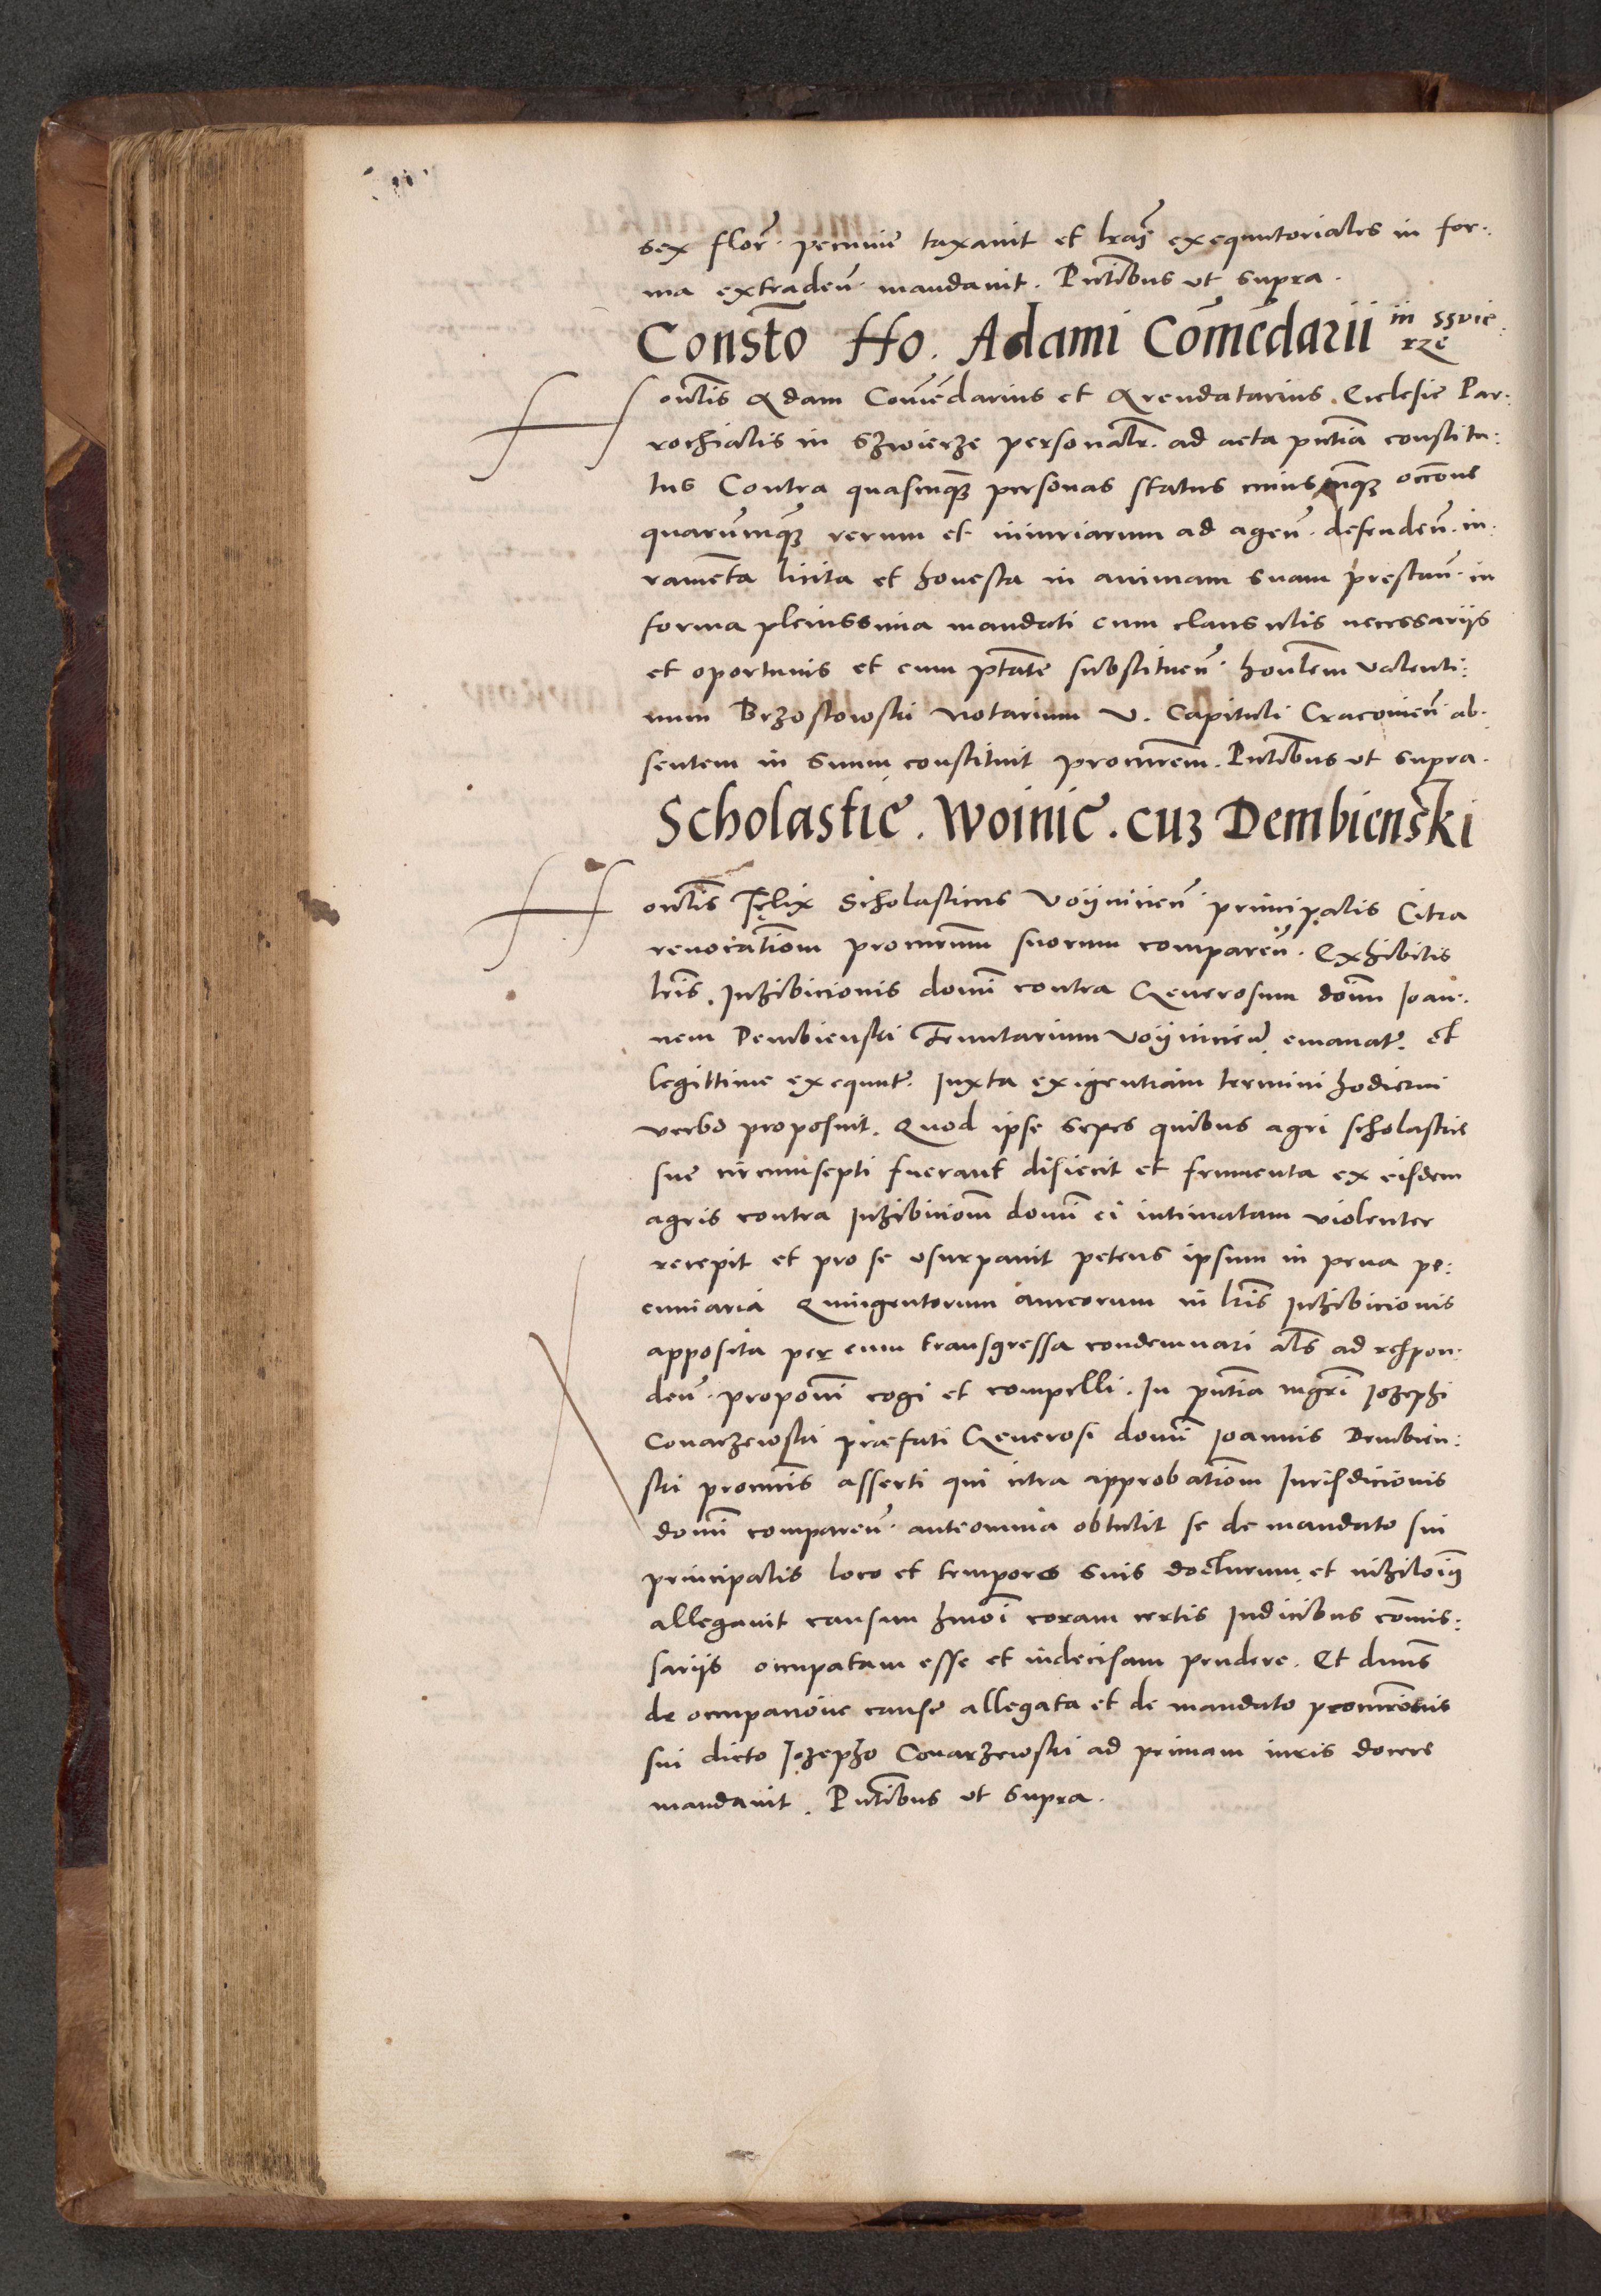 sex flor̃. pecunie taxavit et lr̃as exequutoriales in for:
ma extraden̄. mandavit. Pn̄tibus ut supra.
Constō Ho. Adami Cōmēdarii in ssvie
rze
Hon̄lis Adam Com̄ēdarius et Arendatarius Ecclesie Par:
rochialis in Szwierze personalr̄. ad acta pn̄tia constitu:
tus Contra quascūq₃ personas status cuiuscūq₃ occone
quarumcūq₃ rerum et iniuriarum ad agen̄. defenden̄. iu:
ramēta licita et honesta in animam suam prestan̄. in
forma plenissima mandati cum clausulis necessariis
et oportunis et cum ptāte substituen̄. honlem Valenti:
num Brzostowski Notarium V. Capituli Cracovien̄ ab:
sentem in suum constituit procurem̄. Pn̄tibus ut supra.
Scholastic. Woinic. cuȝ Dembienski
Hon̄lis Felix Scholasticus Voijnicien̄ principalis Citra
revocatiom̄ procurum̄ suorum comparen̄. Exhibitis
lr̄is. Inhibicionis domī contra Generosum dom̄ Ioan:
nem Dembienski Tenutarium Voijnicien̄. emanat̄. et
legittime exequut̄. Iuxta exigentiam termini hodierni
verbo proposuit. Quod ipse sepes quibus agri scholastrie
sue circumsepti fuerant disiecit et frumenta ex eisdem
agris contra Inhibiciom̄ domī ei intimatam violenter
recepit et pro se usurpavit petens ipsum in pena pe:
cuniaria Quingentorum aureorum in lr̄is Inhibicionis
apposita per eum transgressa condemnari als̄ ad respon:
den̄. proponī cogi et compelli. In pn̄tia mgr̄i Iozephi
Covarzewski præfati Generosi domī Ioannis Dembien:
ski procuris̄ asserti qui citra approbatiom̄ Iurisdicionis
domī comparen̄. anteomnia obtulit se de mandato sui
principalis loco et tempore suis docturum et nihilomı̄q
allegavit causam hmoī coram certis Iudicibus cōmis:
sariis occupatam esse et indecisam pendere. Et dnus̄
de occupacione cause allegata et de mandato procuratōis
sui dicto Iozepho Covarzewski ad primam iuris docere
mandavit. Pn̄tibus ut supra.